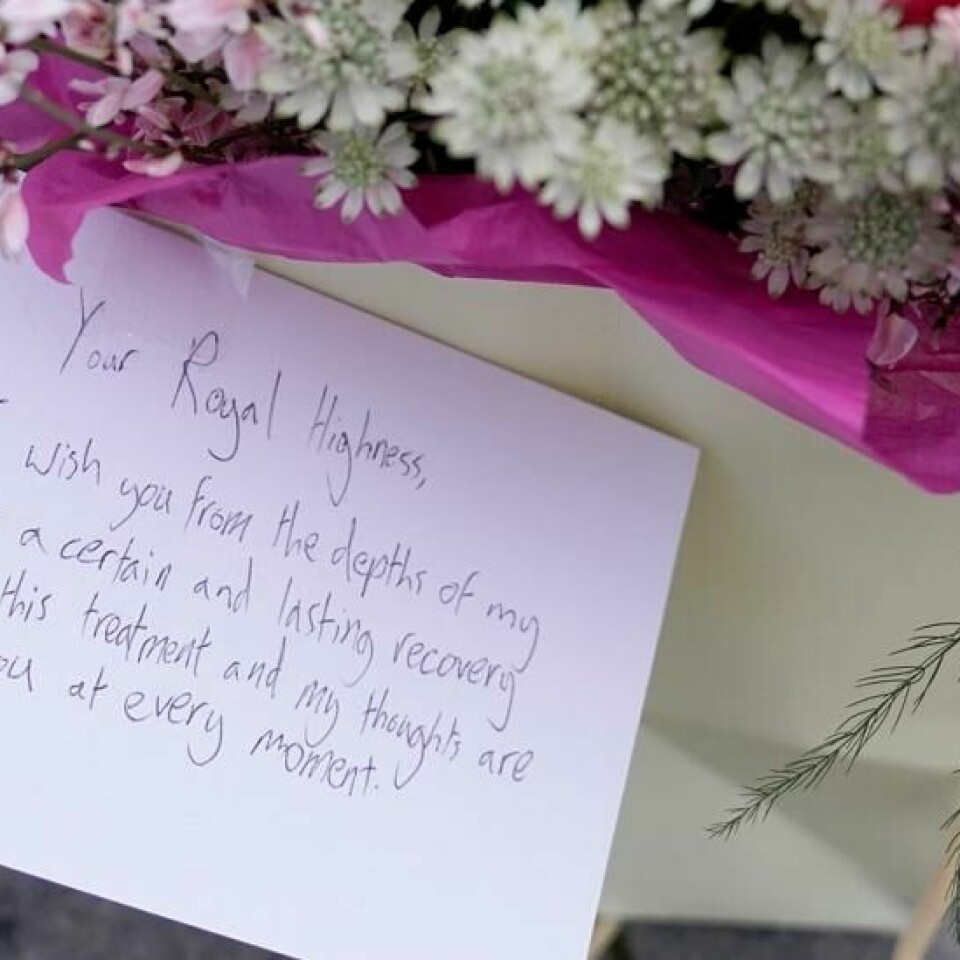 Your Royal Highness,
wish you from the depths of my
a certain and lasting recovery
this treatment and my thoughts are
at every moment.